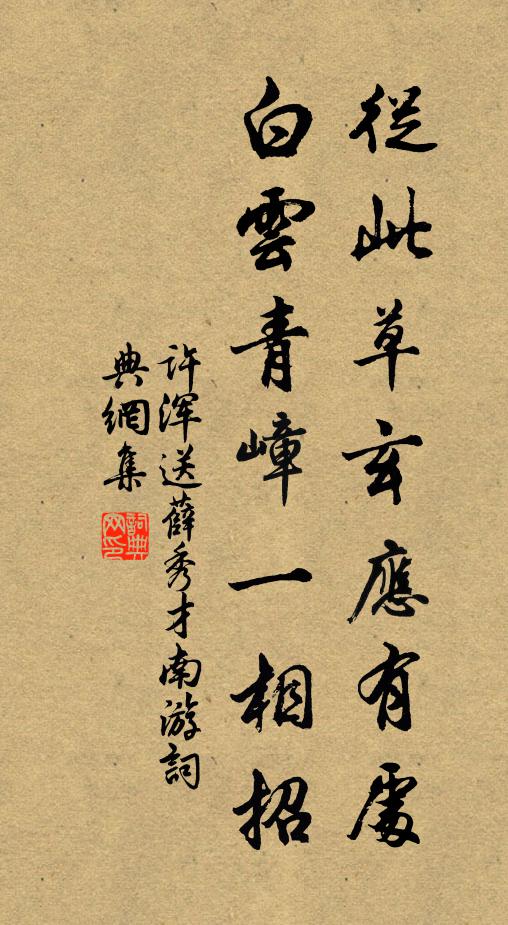 從此草玄應有處
白雲青嶂一相招
许渾送薛秀才南游詞
典網集
詞典
网印